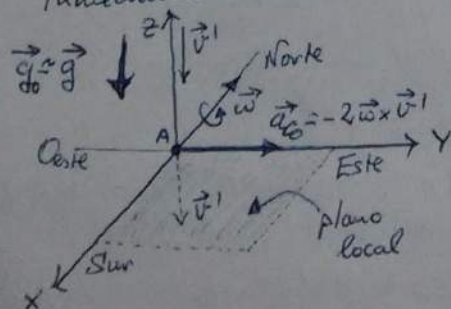 Z
v⃗'
g⃗₀≈g⃗
Norte
ω⃗
A
a⃗co=-2ω⃗×v⃗'
Oeste
Este
Y
v⃗'
plano
local
Sur
X